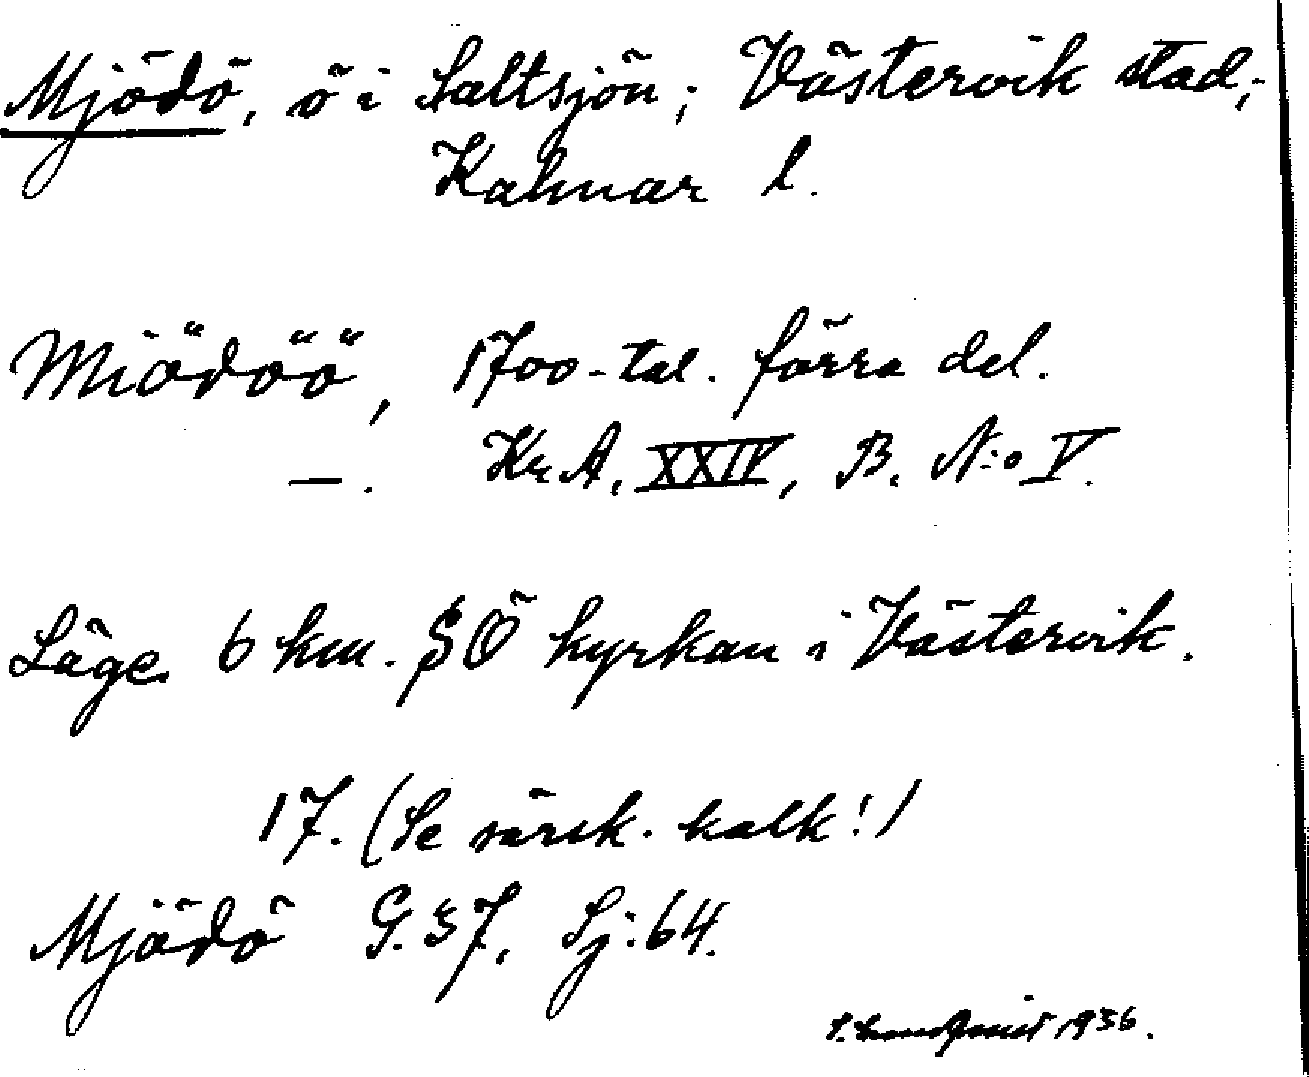 Mjödö, ö i Saltsjön; Västervik stad;
Kalmar l.
Miödöö, 1700-tal. förra del.
—. Kr. A. XXIV, B. N:o V.
Läge. 6 km. SÖ kyrkan i Västervik.
17. (Se särsk. kalk!)
Mjödö G. 37, Sj: 64.
1936.